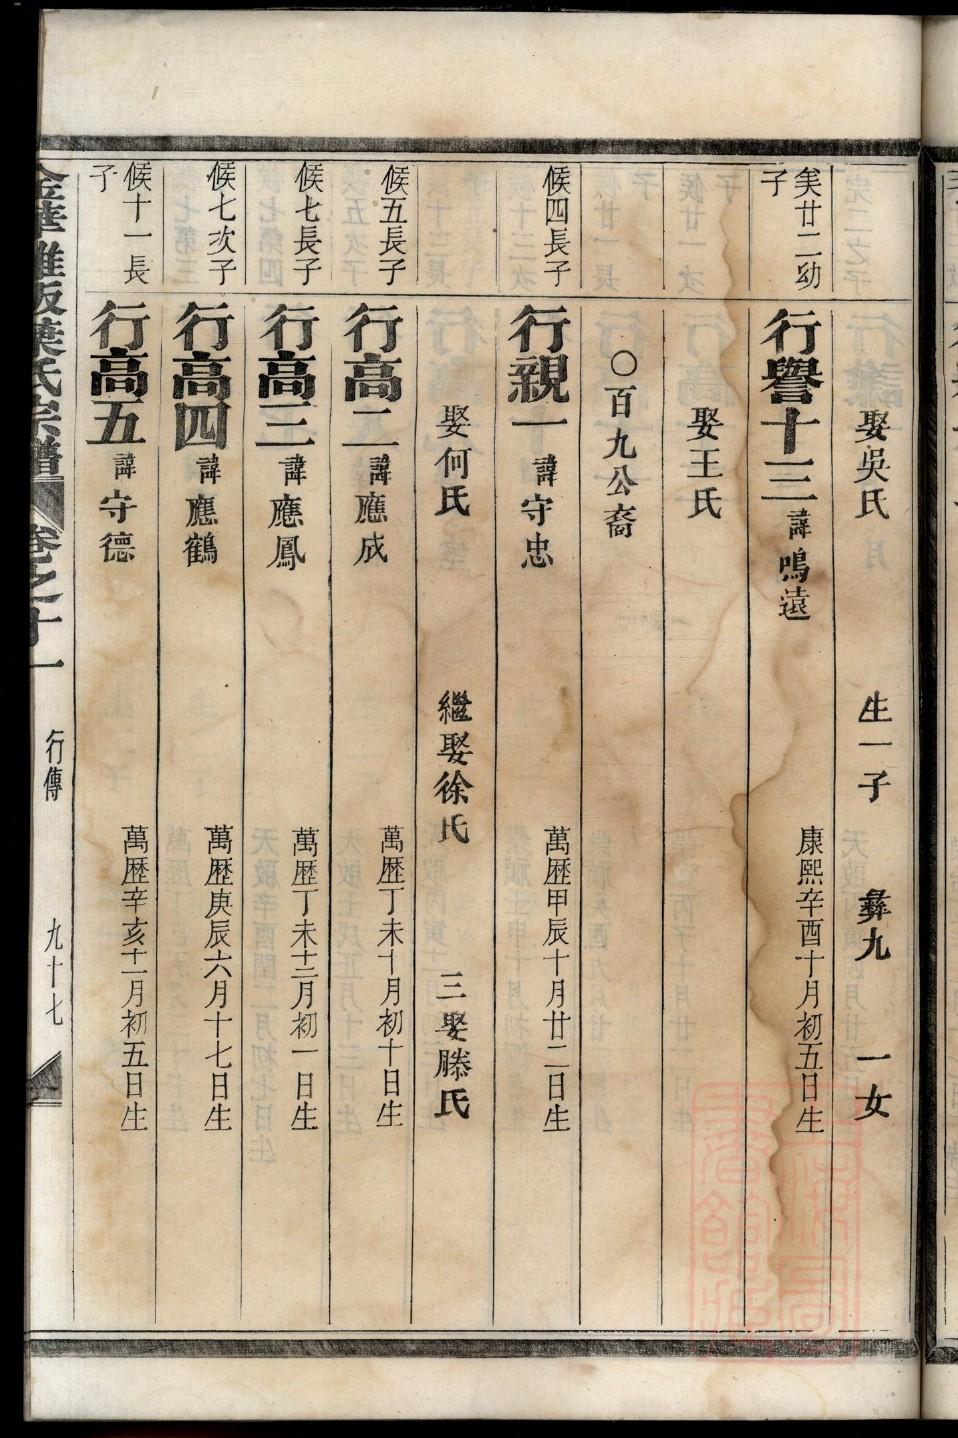 娶吳氏 生一子 彝九 一女
矣廿二幼子
行譽十三 諱鳴遠 康熙辛酉十月初五日生
娶王氏
○百九公裔
候四長子
行親一 諱守忠 萬歷甲辰十月廿二日生
娶何氏 繼娶徐氏 三娶滕氏
候五長子
行高二 諱應成 萬歷丁未十月初十日生
候七長子
行高三 諱應鳳 萬歷丁未十二月初一日生
候七次子
行高四 諱應鶴 萬歷庚辰六月十七日生
候十一長子
行高五 諱守德 萬歷辛亥十一月初五日生
金華雅畈葉氏宗譜 卷之十一 行傳 九十七